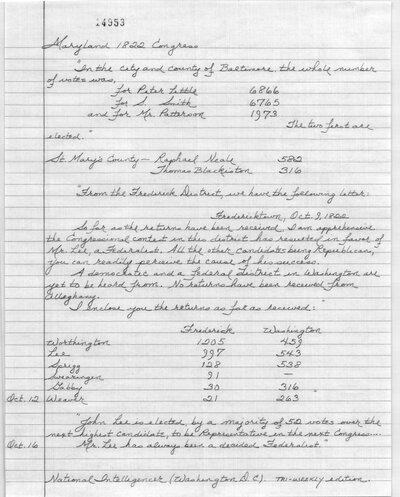 14953
Maryland 1822 Congress
"In the city and county of Baltimore the whole number
of votes was,
for Peter Little 6866
for S. Smith 6765
and for Mr. Patterson 1973
The two first are
elected."
St. Mary's County — Raphael Neale 582
Thomas Blackiston 316
"From the Frederick District, we have the following letter:
Fredericktown, Oct. 9, 1822
So far as the returns have been received, I am apprehensive
the Congressional contest in this district has resulted in favor of
Mr. Lee, a Federalist. All the other candidates being Republicans,
you can readily perceive the cause of his success.
A democratic and a Federal District in Washington are
yet to be heard from. No returns have been received from
Alleghany.
I enclose you the returns as far as received:"
Frederick Washington
Worthington 1205 459
Lee 997 543
Sprigg 128 538
Swearingen 91 —
Gabby 30 316
Oct. 12 Weaver 21 263
"John Lee is elected, by a majority of 50 votes over the
next highest candidate, to be Representative in the next Congress....
Oct. 16 Mr. Lee has always been a decided Federalist."
National Intelligencer (Washington D.C.). tri-weekly edition.